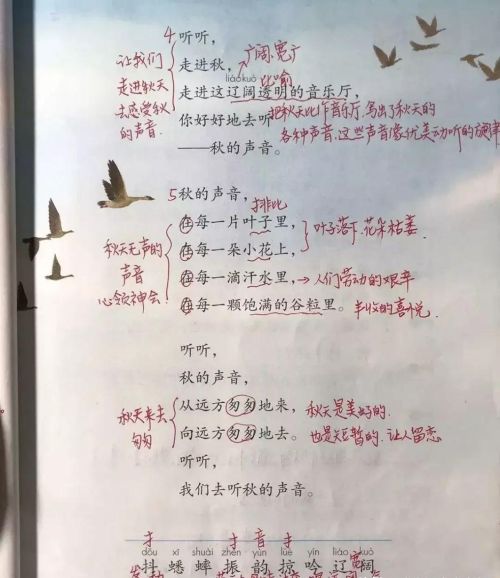 4 听听，
走进秋， 广阔.宽广
liáokuò 比喻
走进这辽阔透明的音乐厅，
你好好地去听 把秋天比作音乐厅，写出了秋天的
各种声音.这些声音像优美动听的旋律
——秋的声音。
让我们
走进秋天
去感受秋
的声音.
5 秋的声音， 排比
在每一片叶子里，
在每一朵小花上， 叶子落下.花朵枯萎.
在每一滴汗水里，→人们劳动的艰辛
在每一颗饱满的谷粒里。 丰收的喜悦.
秋天无声的
声音
心领神会
听听，
秋的声音，
从远方匆匆地来， 秋天是美好的.
向远方匆匆地去。 也是短暂的.让人留恋
秋天来去
匆匆
听听，
我们去听秋的声音。
扌 扌 音 扌
dǒu xī shuài zhèn yùn lüè yín liáo kuò
抖 蟋 蟀 振 韵 掠 吟 辽 阔